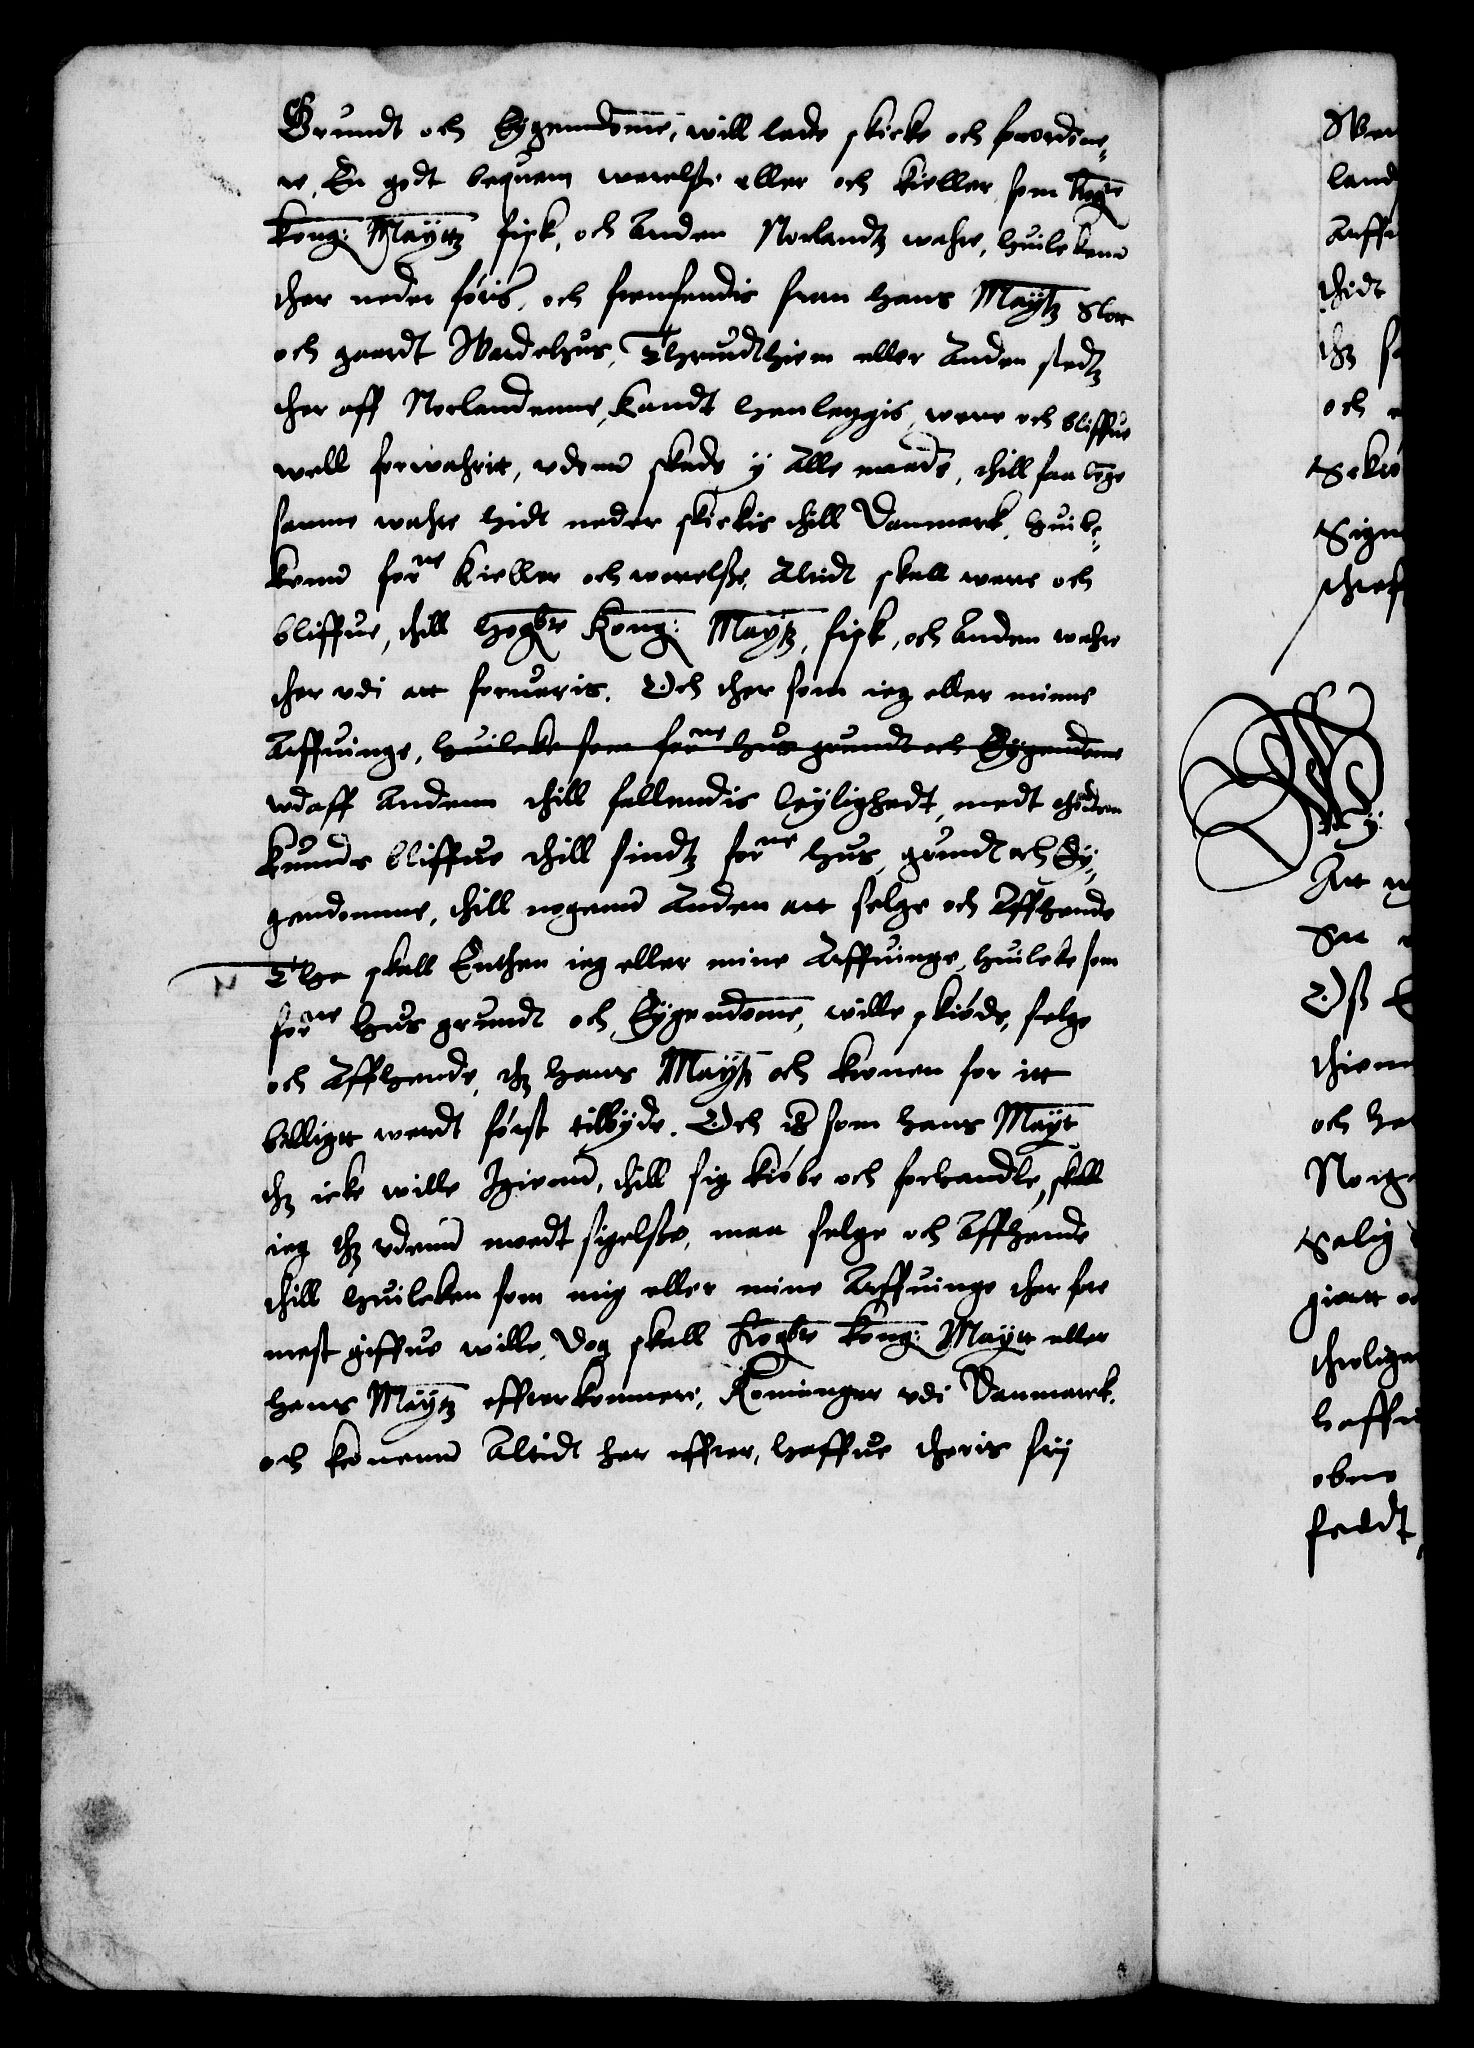 Grundt och Eÿgendome, will lade skicke och forordine=
re, En godt bequem werelsse eller och kieller som hogbe
Kong: Maÿttz fisk, och Anden Norlandtz wahre, huilckenn
ther neder føris, och fremsendis fran hans Maÿtz Slott
och gaardt Wardehus, Thrundthiem eller Anden stedtz
ther aff Norlandenne, kandt henleggis, were och bliffue
well forwahritt, vdenn skade ÿ Alle maade, thill saa lenge
samme wahre hidt neder skickis thill Danmark, huilc=
kenn forne Kieller och werelsse, Altidt skall were och
bliffue, thill hogbte Kong: Maÿtz, fisk, och Anden wahre
ther vdi att foruaris. Och ther som ieg eller minne
Arffuinge, huilcke som forne hus grundt och Eÿgendome
vdaff Andenn thill fallendis leÿlighedt, medt
kunde bliffue thill sindtz forne hus, grundt och Eÿ=
gendomme, thill nogenn Anden att selge och Affhende
Tha skall Enthen ieg eller mine Arffuinge, huilcke som
forne hus grundt och Eÿgendome, wille skiøde, selge
och Affhende, thz hans Maÿtz och kronen for itt
billigtt werdt først tilbÿde. Och som hans Maÿt
thz icke wille Igienn, thill sig kiøbe och forhandle, skall
ieg thz vdenn modt sigelsse, maa selge och Affhende
thill huilcken som mig eller mine Arffuinge ther for
mest giffue wille, dog skall hogbte Kong: Maÿtt eller
hans Maÿtz effterkommere, Konninger vdi Danmarck.
och kronenn Altidt her effter, haffue theris frÿ
Wa
land
Arff
thidt
thz
och
Sekre
Sign
threff
Wÿ:
Att
Saa
Oss
thienn
och ha
Norg
Salig
giøtt
throlig
haffu
oben
fædt